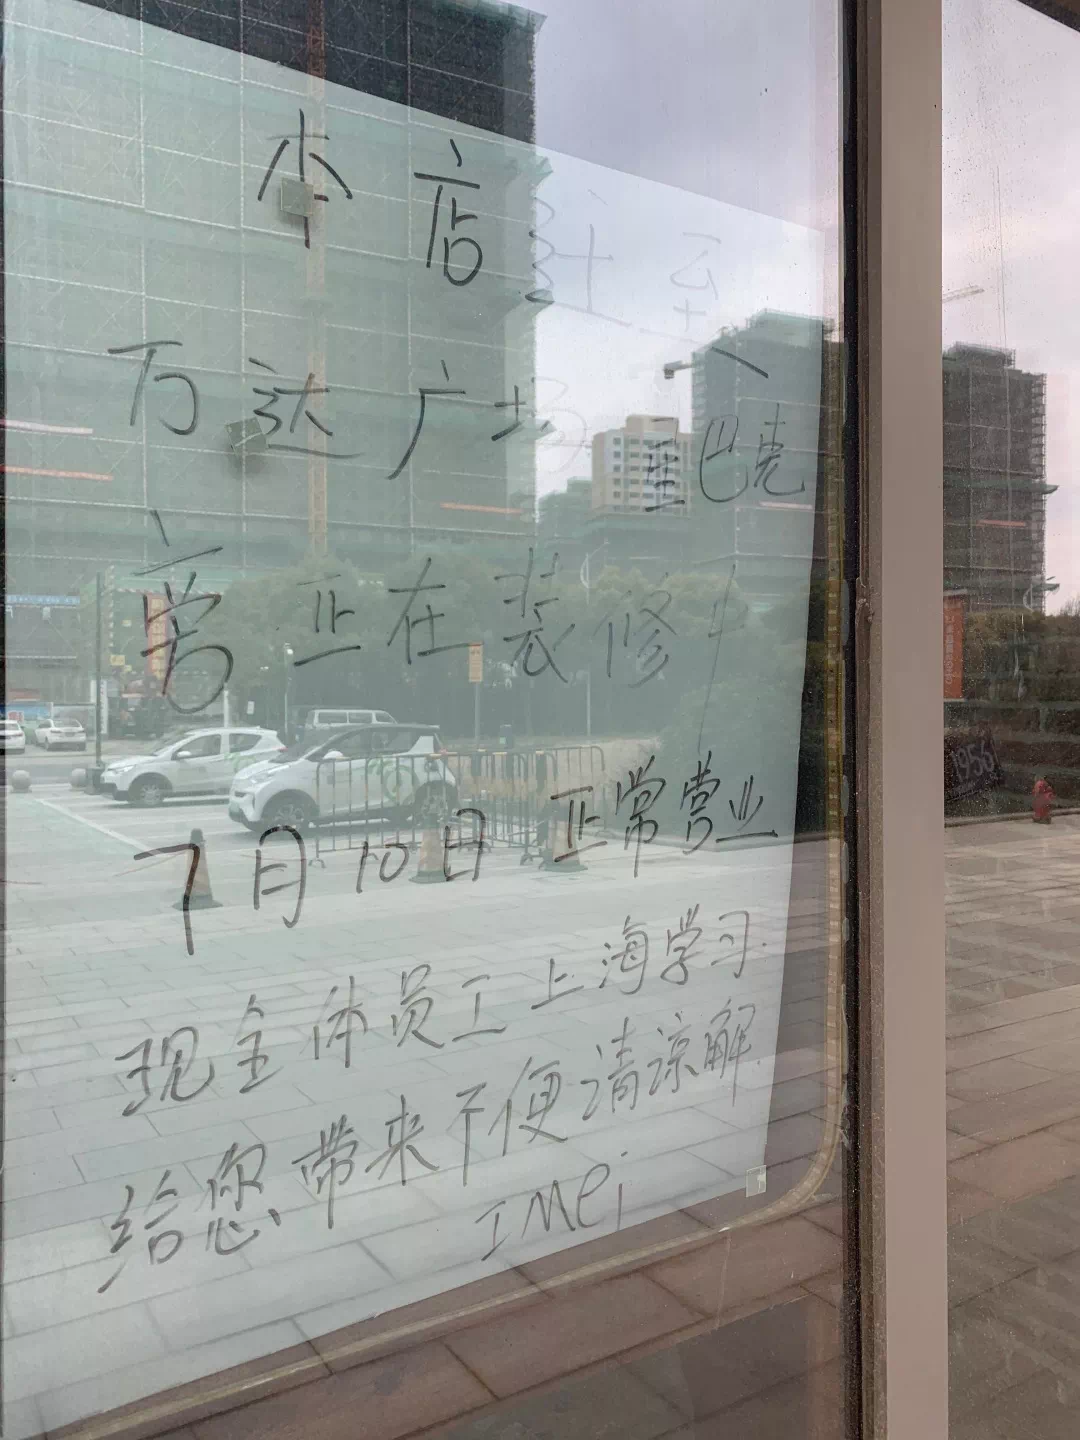 本店迁至
万达广场星巴克
旁正在装修中
7月10日正常营业
现全体员工上海学习
给您带来不便请谅解
IMEi
1956